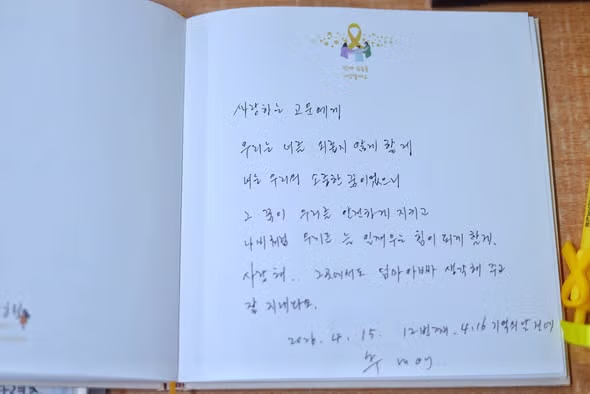 사랑하는 고운에게
우리는 너를 외롭지 않게 할게
너는 우리의 소중한 꿈이었으니
그 꿈이 우리를 안전하게 지키고
나비처럼 우리를 늘 일깨우는 힘이 되게 할게.
사랑해. 그곳에서도 엄마 아빠 생각해 주고
잘 지내다오.
2026. 4. 15. 12번째. 4.16 기억의 날 전에